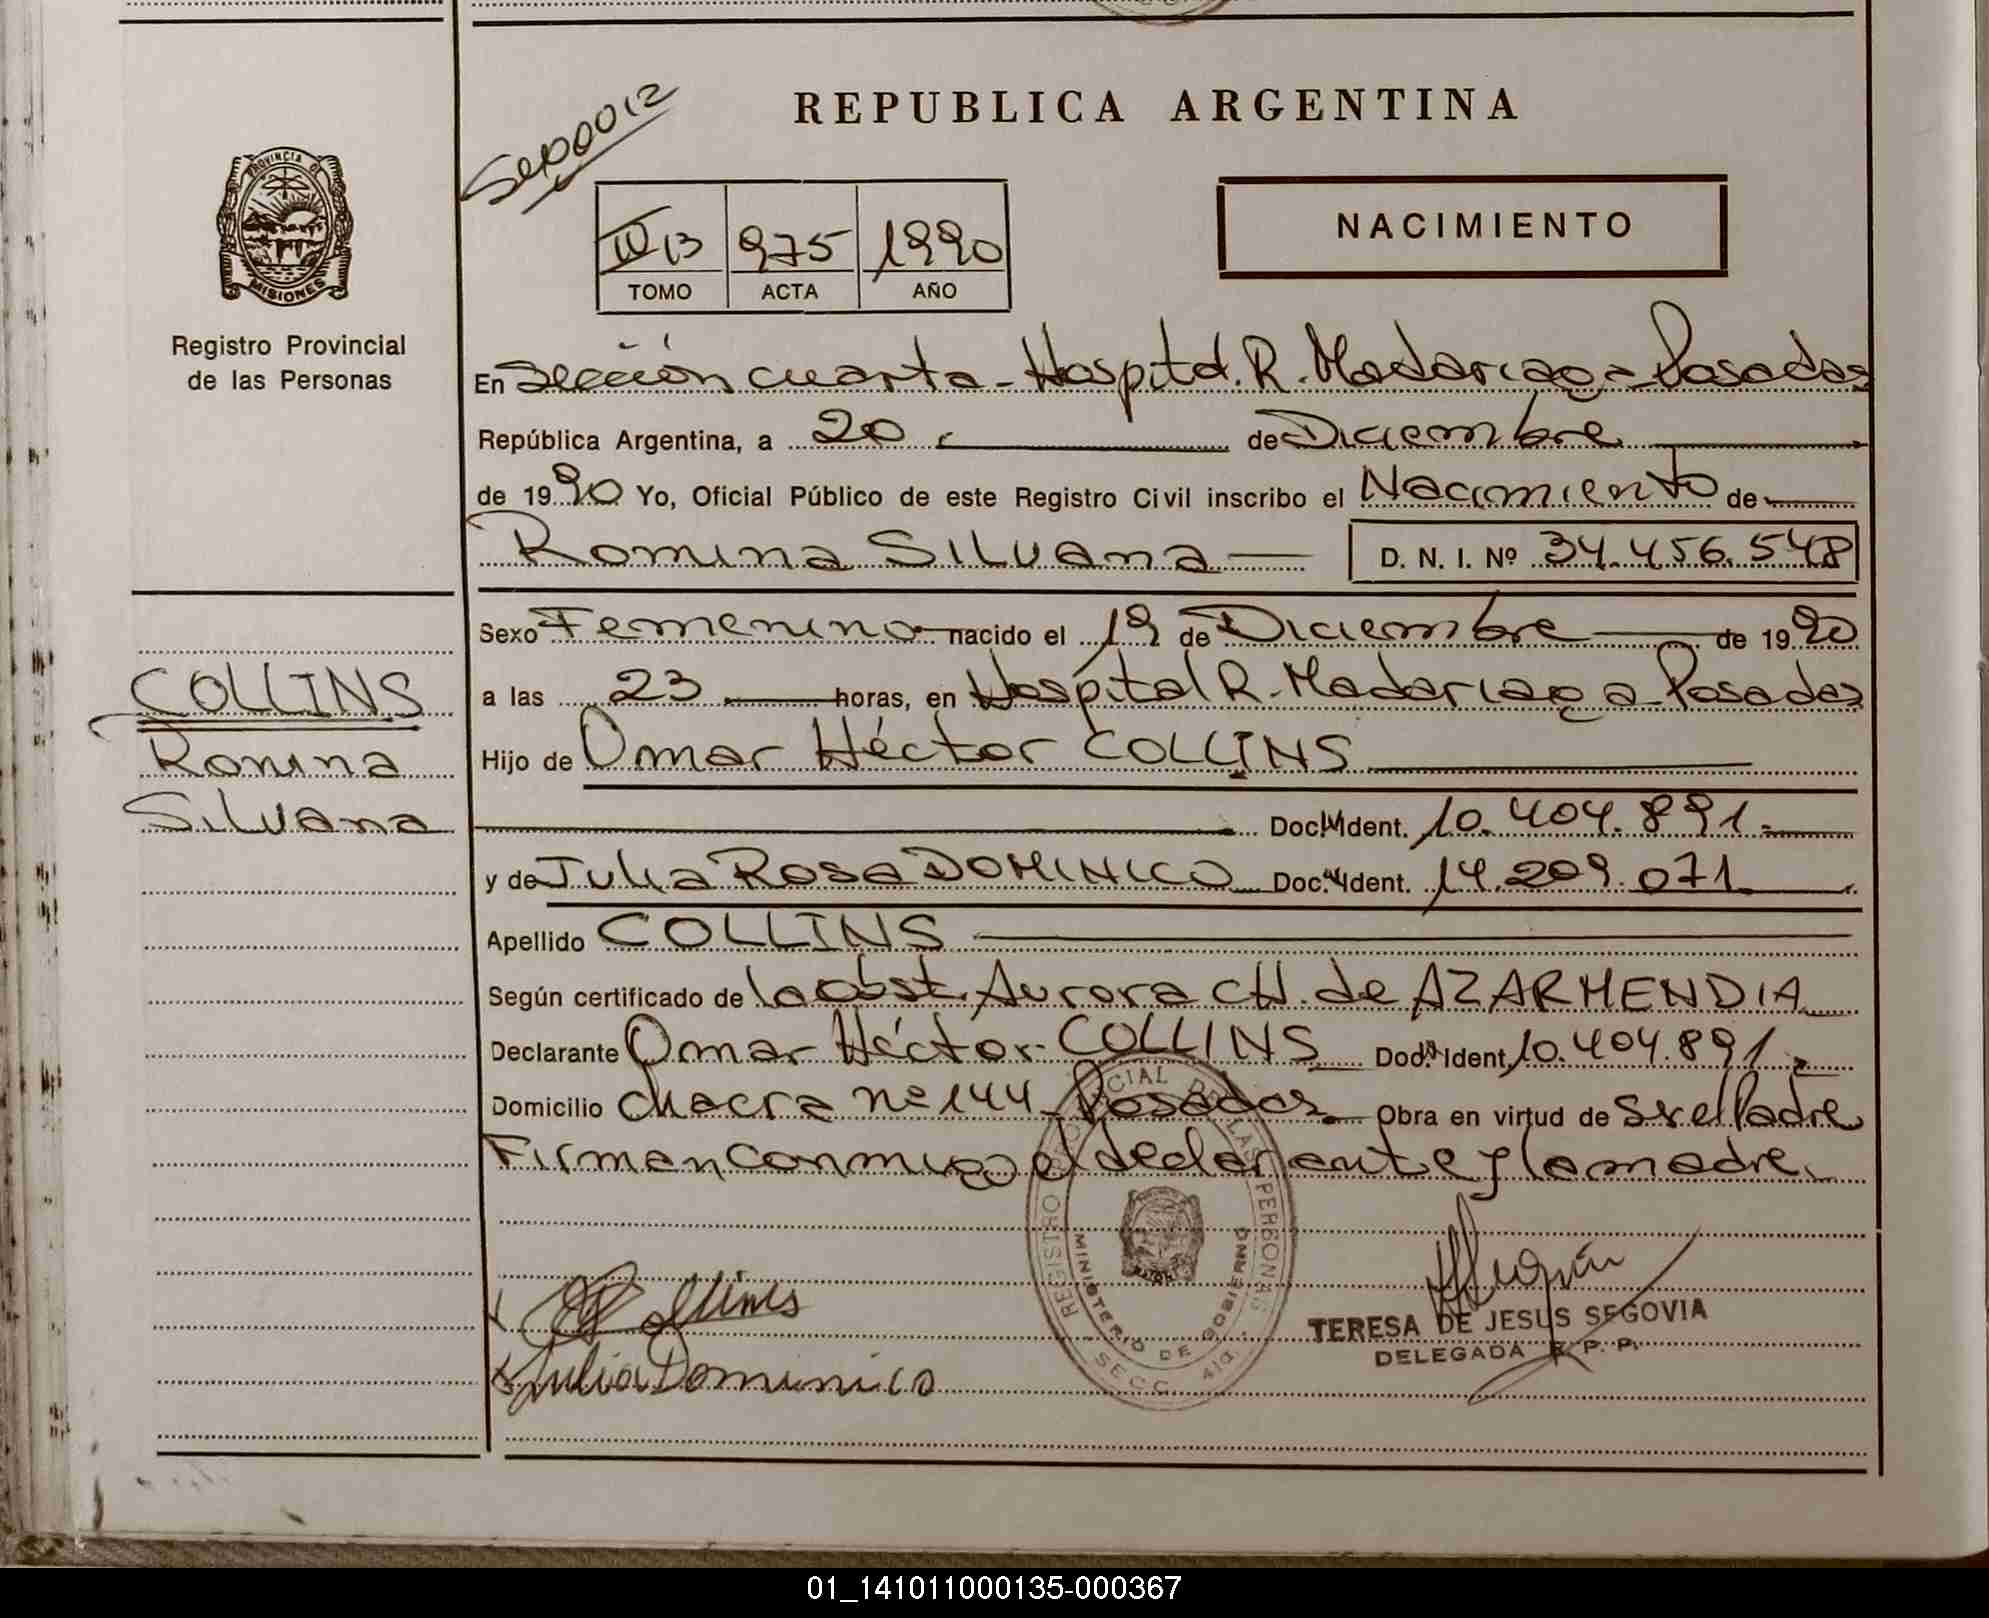 Sep 00012
REPUBLICA ARGENTINA
PROVINCIA D
MISIONES
NACIMIENTO
IV 13 975 1990
TOMO ACTA AÑO
Registro Provincial
de las Personas
En Sección cuarta - Hospital. R. Madariaga - Posadas
República Argentina, a 20 de Diciembre
de 1990 Yo, Oficial Público de este Registro Civil inscribo el Nacimiento de
Romina Silvana D. N. I. Nº 34.456.548
Sexo Femenino nacido el 19 de Diciembre de 1990
a las 23 horas, en Hospital R. Madariaga - Posadas
Hijo de Omar Héctor COLLINS
Doc. Ident. 10.404.891.-
y de Julia Rosa DOMINICO Doc. Ident. 14.209.071
Apellido COLLINS
Según certificado de la Obst. Aurora CH. de AZARMENDIA
Declarante Omar Héctor COLLINS Doc. Ident. 10.404.891.
Domicilio Chacra Nº 144 - Posadas Obra en virtud de Ser el Padre
Firman conmigo el declarante y la madre.
COLLINS
Romina
Silvana
REGISTRO PROVINCIAL DE LAS PERSONAS
MINISTERIO DE GOBIERNO
SECC. 4ta.
Collins
Julia Dominico
TERESA DE JESUS SEGOVIA
DELEGADA R. P. P.
01_141011000135-000367